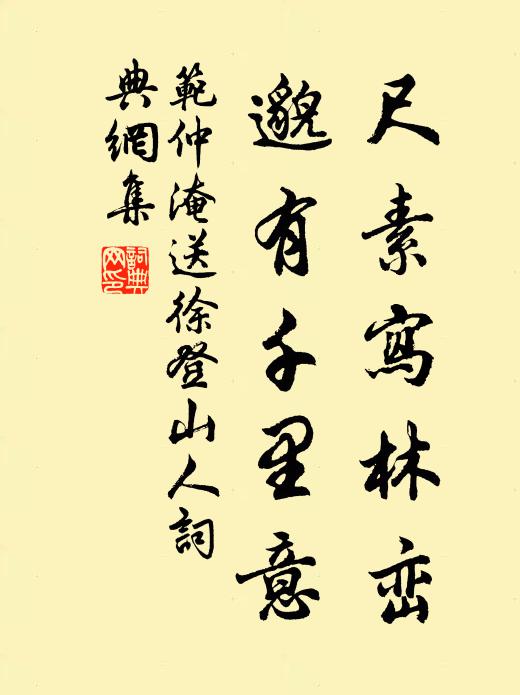 尺素寫林峦
邈有千里意
範仲淹送徐登山人詞
典網集
詞典
网印